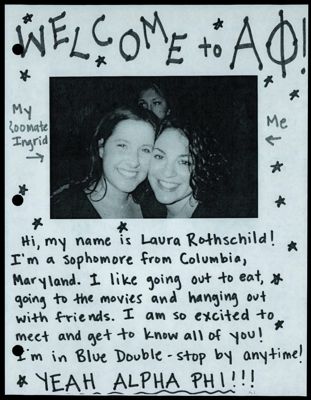 WELCOME to AΦ!
My
Roomate
Ingrid
Me
Hi, my name is Laura Rothschild!
I'm a Sophomore from Columbia,
Maryland. I like going out to eat,
going to the movies and hanging out
with friends. I am so excited to
meet and get to know all of you!
I'm in Blue Double - stop by anytime!
YEAH ALPHA PHI!!!